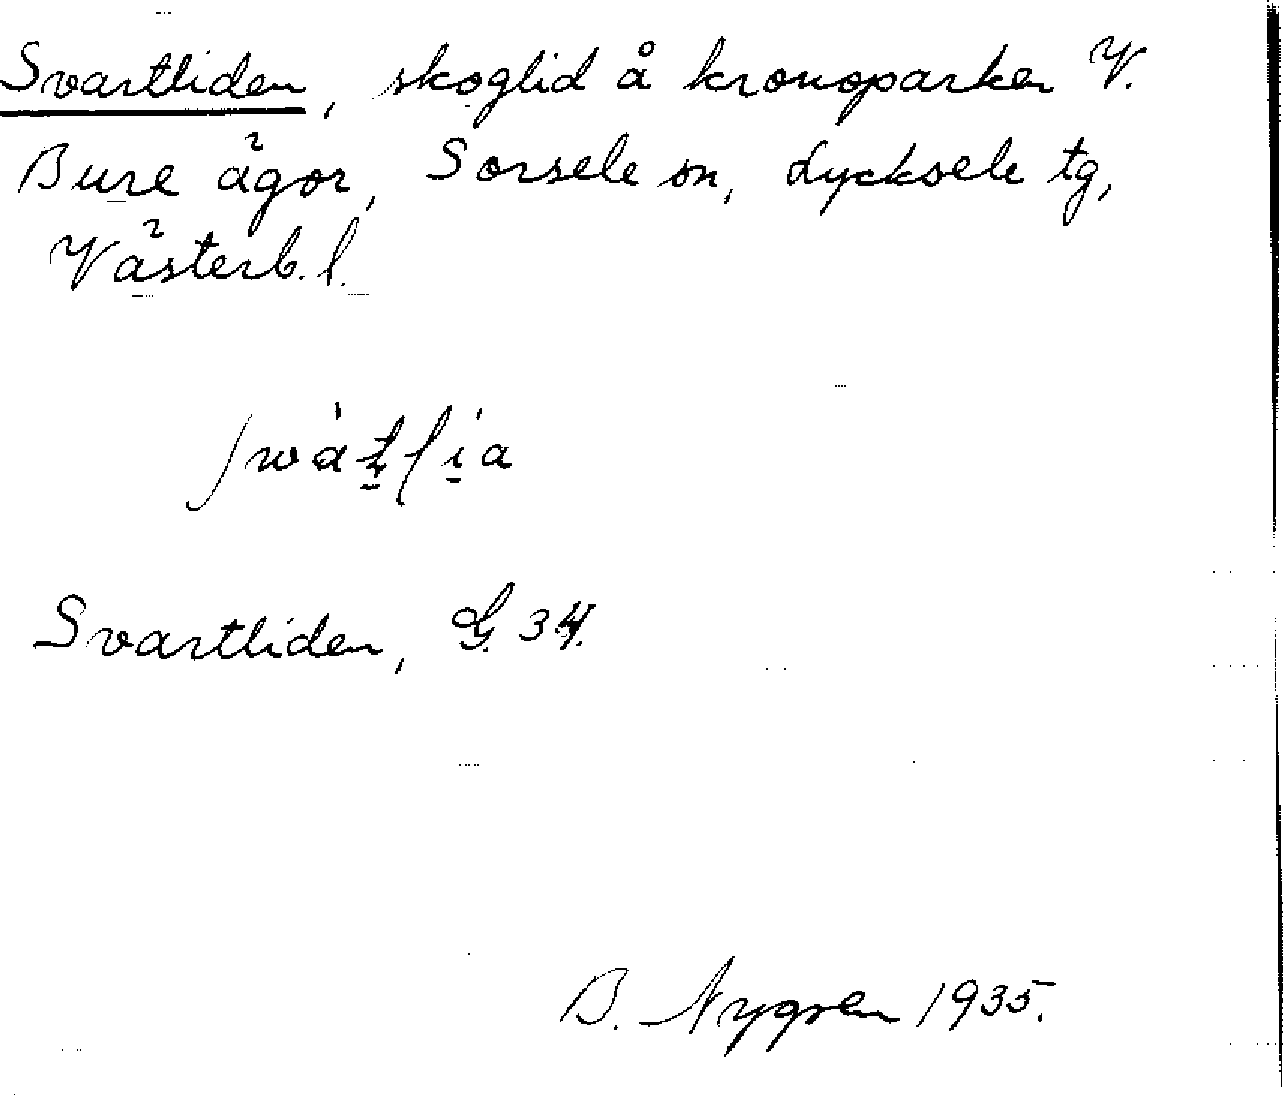 Svartliden, skoglid å kronoparken V.
Bure ägor, Sorsele sn, Lycksele tg,
Västerb. l.
Svartliden, G. 34.
B. Nygren 1935.